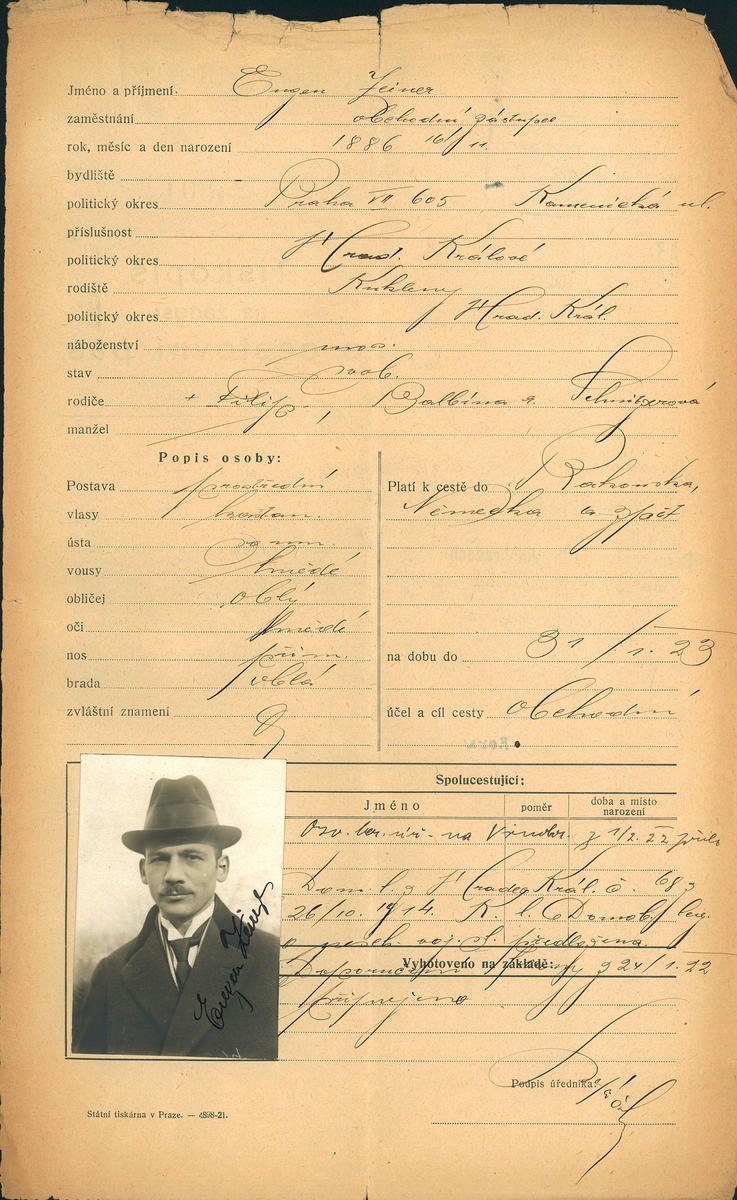 Jméno a příjmení Eugen Zeiner
zaměstnání obchodní zástupce
rok, měsíc a den narození 1886 16/11
bydliště
politický okres Praha VII 605 Kamenická ul.
příslušnost
politický okres Hrad. Králové
rodiště Kukleny
politický okres Hrad. Král.
náboženství mos.
stav svob.
rodiče + Filip, Balbína r.
manžel
Popis osoby:
Postava prostřední
vlasy kaštan.
ústa
vousy hnědé
obličej oblý
oči hnědé
nos přim.
brada oblá
zvláštní znamení
Platí k cestě do Rakouska,
Německa a zpět
na dobu do 31/1. 23
účel a cíl cesty obchodní
Spolucestující:
Jméno poměr doba a místo narození
na Vinohr. z 1/2. 22
Dom. l. z Hradce Král. č. 683
26/10. 1914. K. l. Domob.
předložena.
Vyhotoveno na základě:
Doporučení z 24/1. 22
připojeno
Eugen Zeiner
Podpis úředníka:
Státní tiskárna v Praze. — 4898-21.